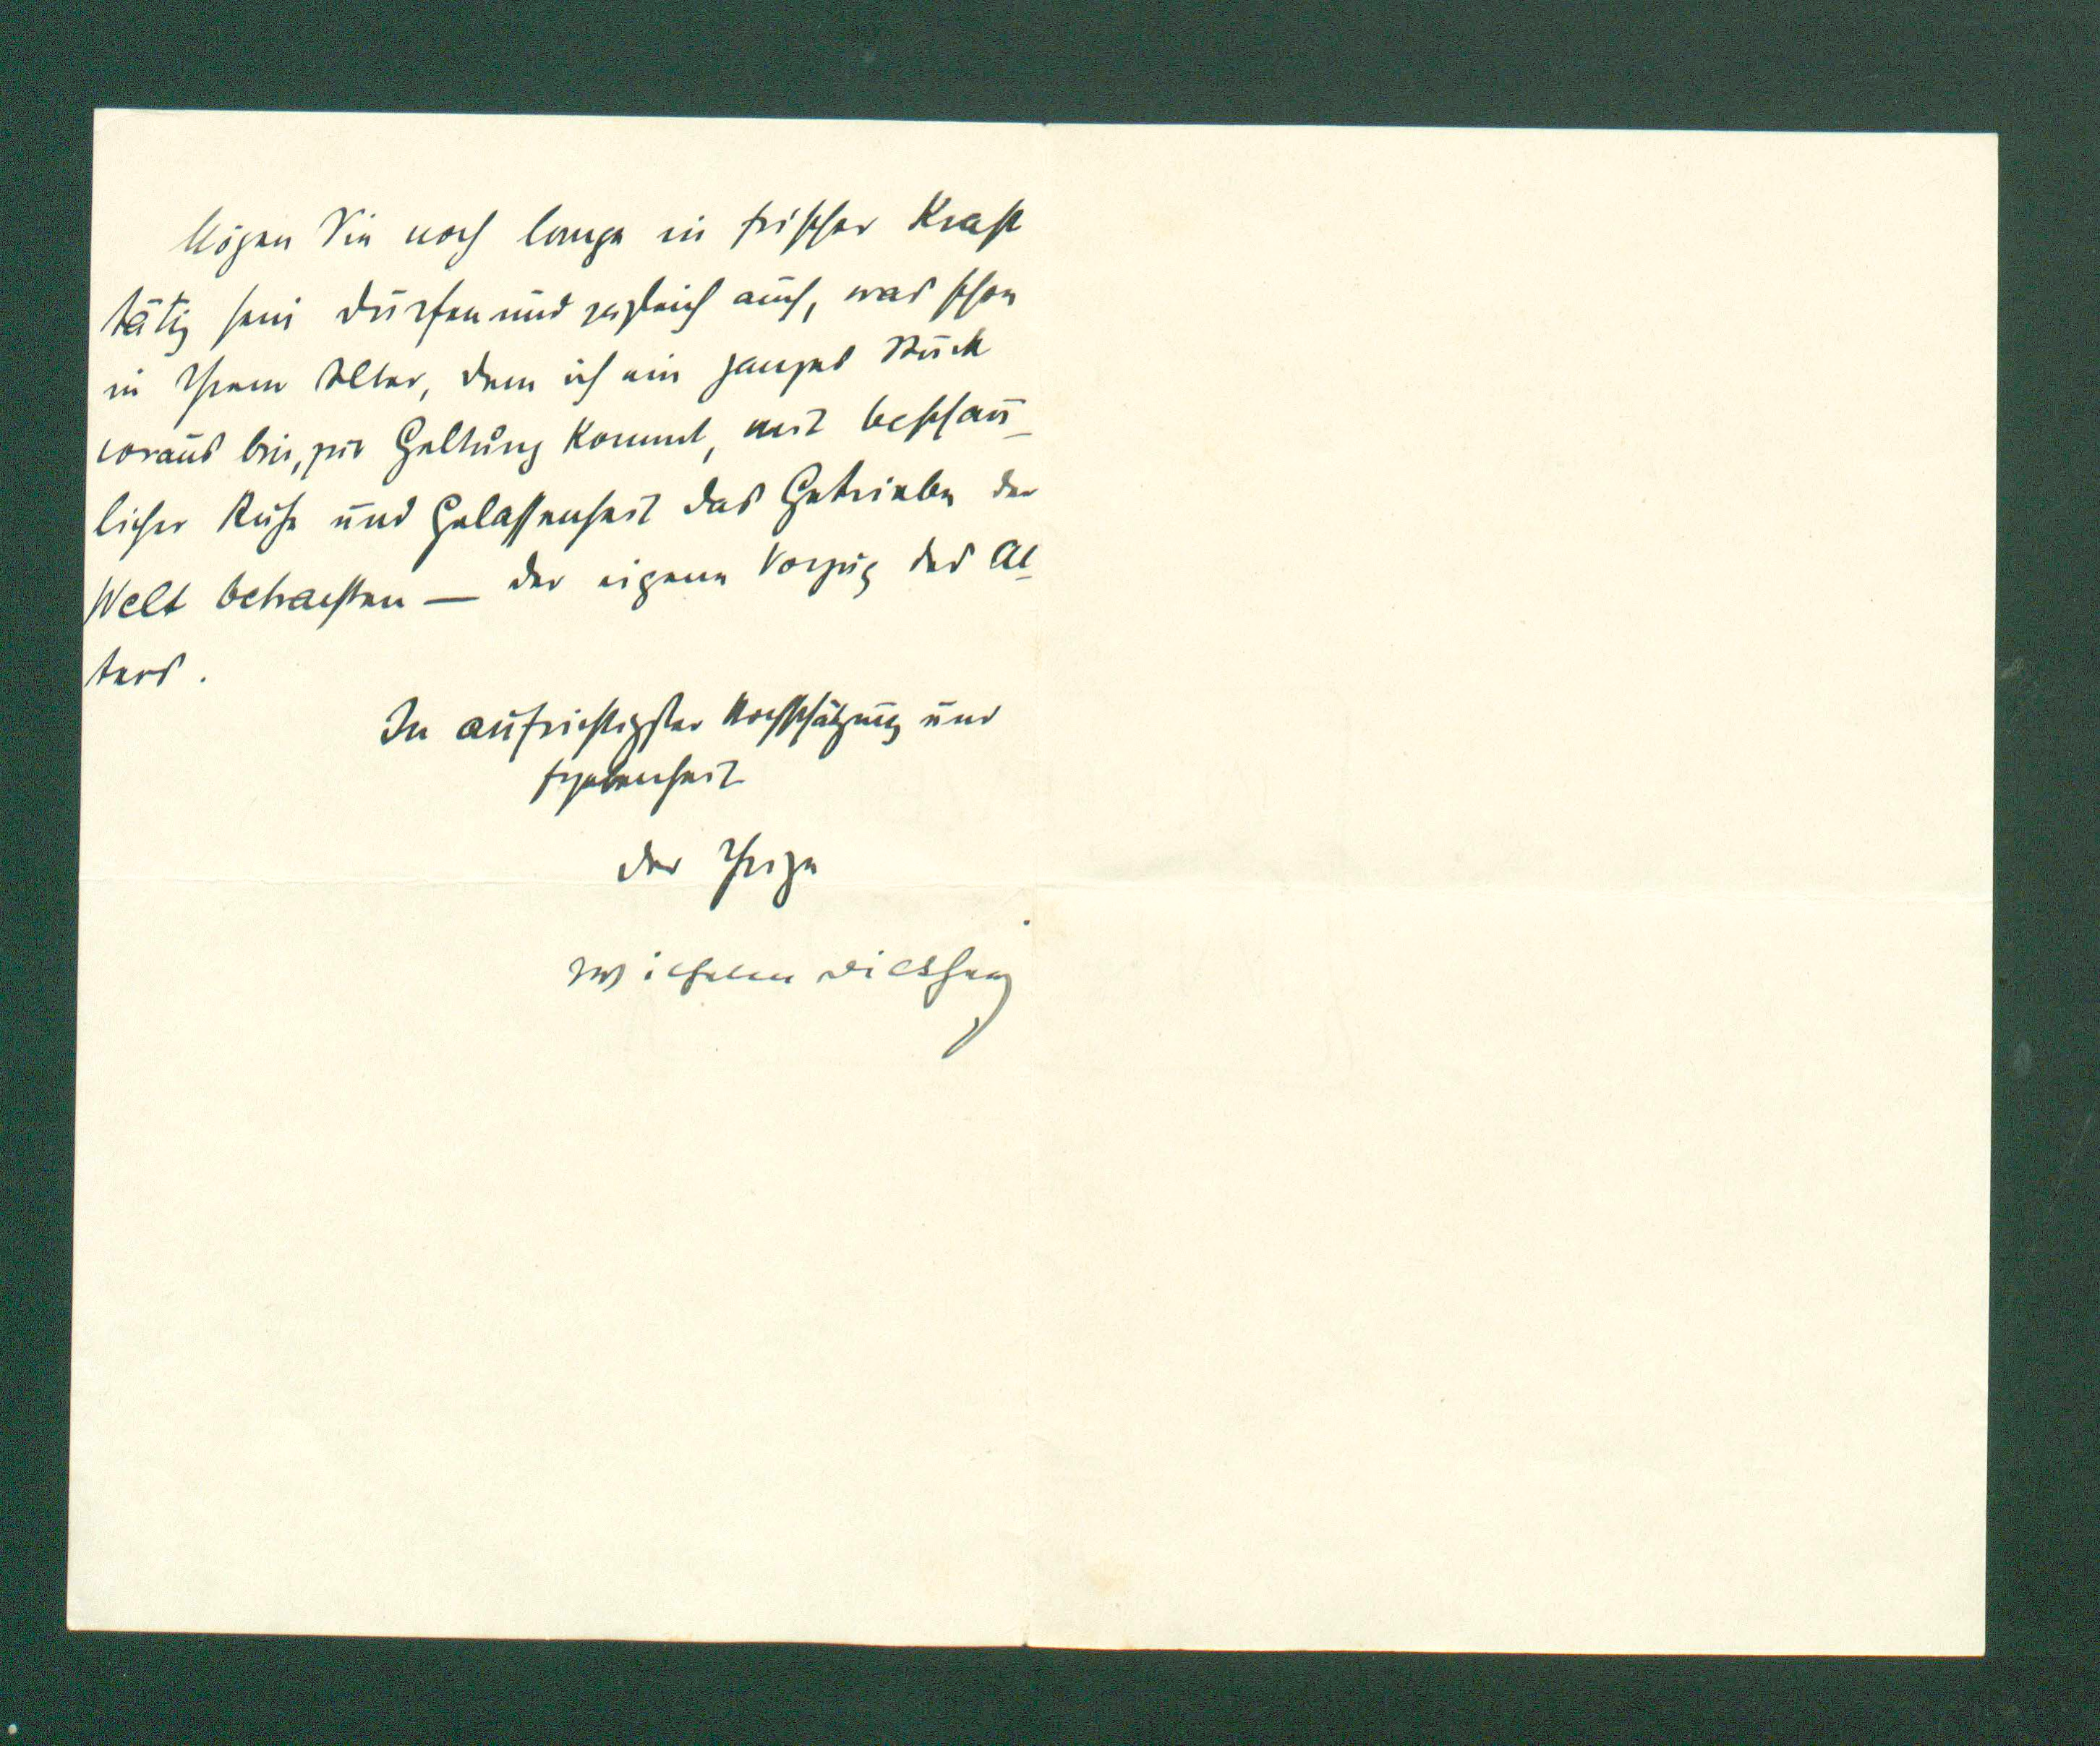 Mögen Sie noch lange in frischer Kraft
tätig sein dürfen und zugleich auch, was schon
in Ihrem Alter, dem ich ein ganzes Stück
voraus bin, zur Geltung kommt, mit beschau-
licher Ruhe und Gelassenheit das Getriebe der
Welt betrachten — der eigene Vorzug des Al-
ters.
In aufrichtigster Hochschätzung und
Ergebenheit
der Ihrige
Wilhelm